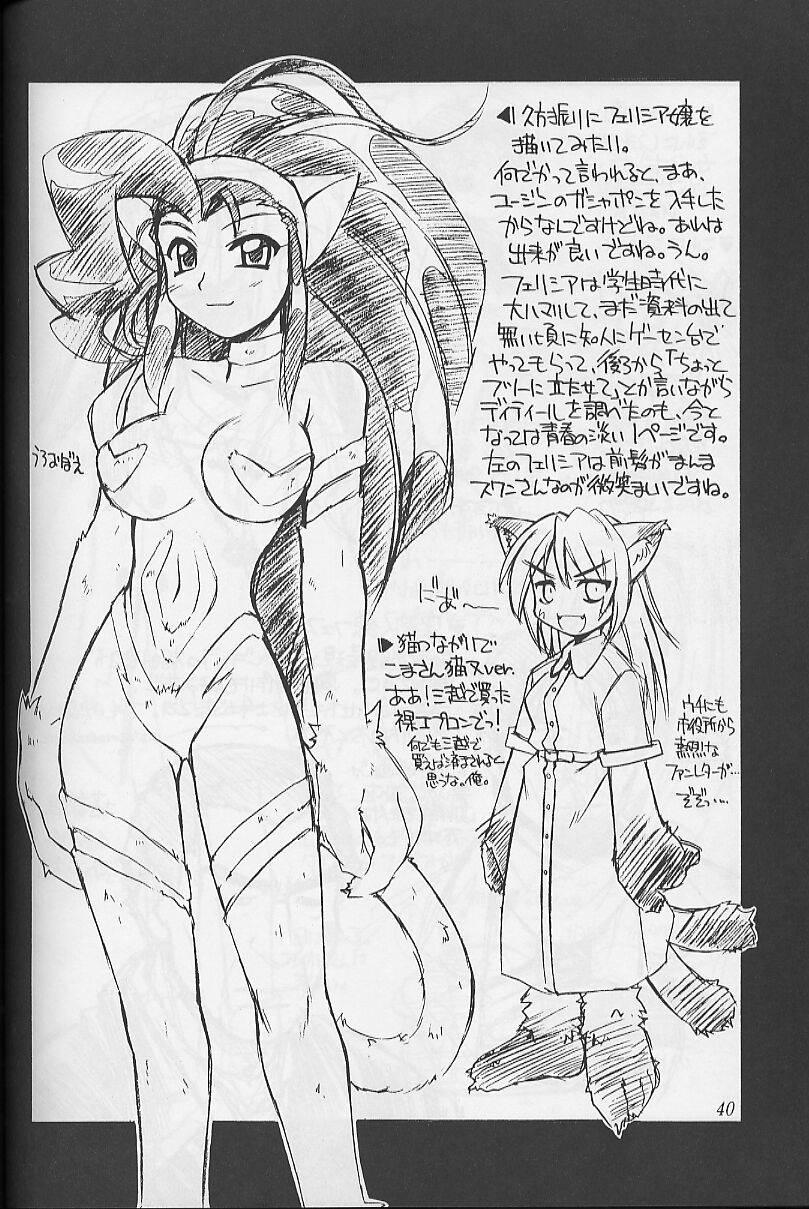 ◀久方振りにフェリシア嬢を
描いてみたり。
何でかって言われると、まあ、
ユージンのガシャポンを入手した
からなんですけどね。あれは
出来が良いですね。うん。
フェリシアは学生時代に
大ハマりして、まだ資料の出て
無い頃に知人にゲーセン台で
やってもらって、後ろから「ちょっと
ブリーに立たせて」とか言いながら
ディティールを調べたのも、今と
なっては青春の淡い1ページです。
左のフェリシアは前髪がまんま
スワンさんなのが微笑ましいですね。
うろおぼえ
にゃあ〜
▶猫つながりで
こまさん猫又ver.
ああ!三越で買った
裸エプコンでっ!
何でも三越で
買えば済まされると
思うな。俺。
ウチにも
市役所から
熱烈な
ファンレターが…
ぞぞっ…
40